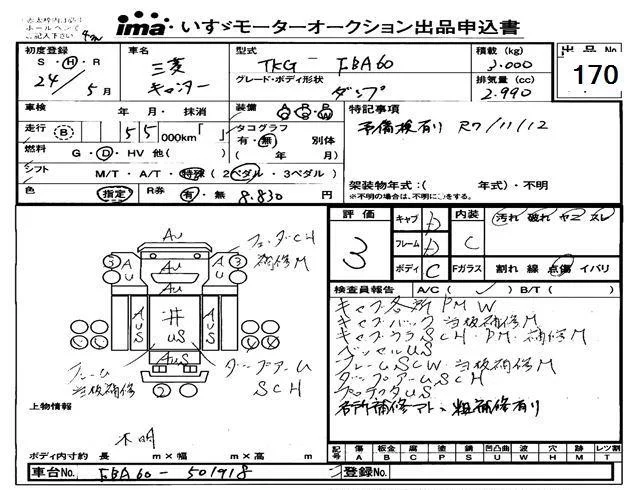 ima いすゞモーターオークション出品申込書
初度登録 車名 型式 積載(kg) 出品No
S・H・R 三菱 TKG-FBA60 3.000 170
24/5月 キャンター グレード・ボディ形状 排気量(cc)
ダンプ 2.990
車検 年・月・抹消 装備 特記事項
走行 B 55 000km 「 」 タコグラフ 有・無 別体 予備検有り R7/11/12
燃料 G・D・HV 他( ) ( 年 月)
シフト M/T・A/T・特殊(2ペダル・3ペダル) 架装物年式:( 年式)・不明
色 指定 R券 有・無 8.830 円 ※不明の場合は、不明に○をする。
評価 3 キャブ D 内装 C 汚れ 破れ ヤニ スレ
フレーム D
ボディ C Fガラス 割れ 線 点傷 イバリ
検査員報告 A/C( ) B/T( )
キャブ各所PMW
キャブバック当板補修M
キャブウラSCH・PM・補修M
ベッセルUS
フレームSCW 当板補修M
ダンプアームSCH
デッキタUS
各所補修アト・粗補修有り
AU
フェンダCH
補修M
5 AU AU AU 3
AUS 井 US AUS
AUS
フレーム
当板補修
ダンプアーム
SCH
2
上物情報
不明
ボディ内寸約 長 m×幅 m×高 m
記号 傷 板金 腐 塗 錆 凹凸曲 波 穴 跡 レツ割
A B C P S U W H M T
車台No. FBA60-501918 登録No.